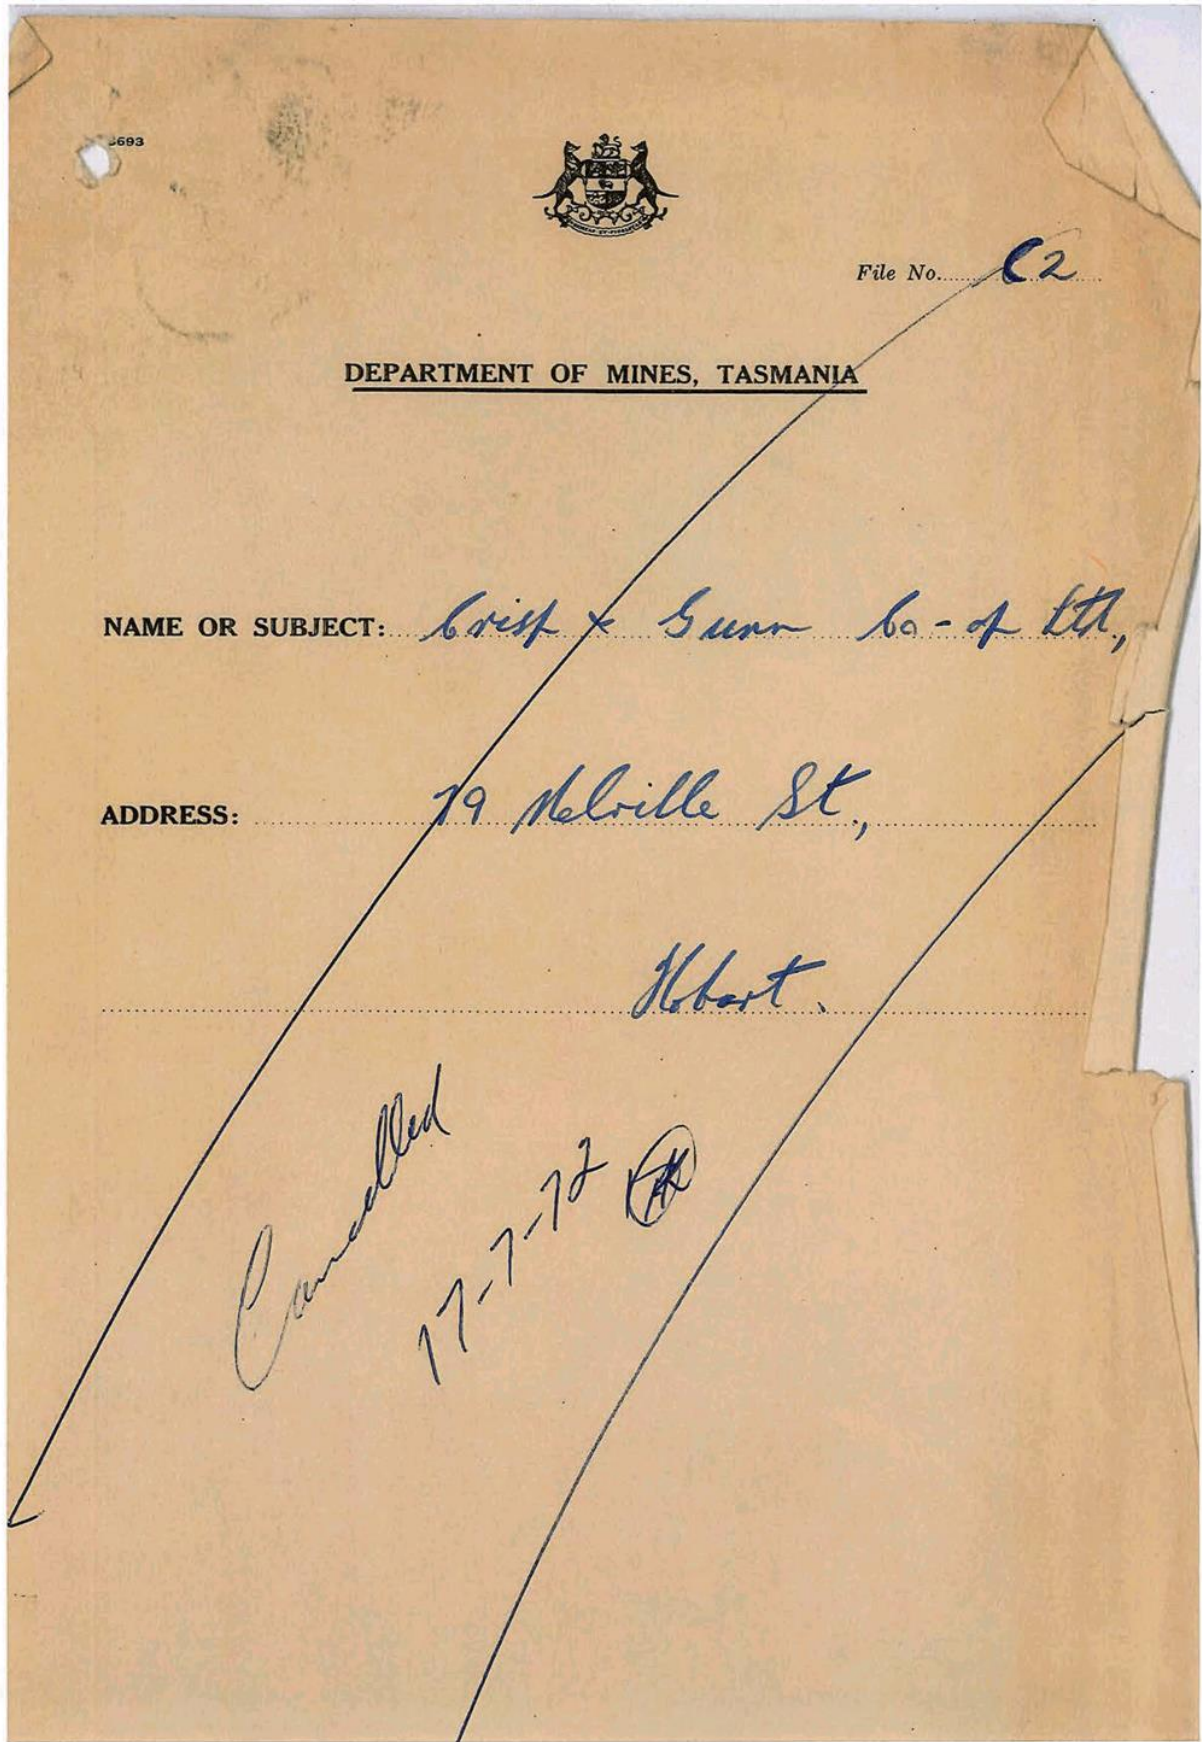 693
File No. C2
DEPARTMENT OF MINES, TASMANIA
NAME OR SUBJECT: Crisp & Gunn Co-op Ltd,
ADDRESS: 79 Melville St.,
Hobart.
Cancelled
17-7-72